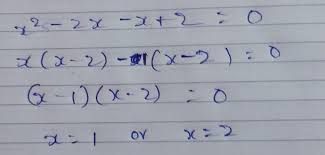 x² - 2x - x + 2 = 0
x(x-2) - 1(x-2) = 0
(x-1)(x-2) = 0
x = 1 or x = 2